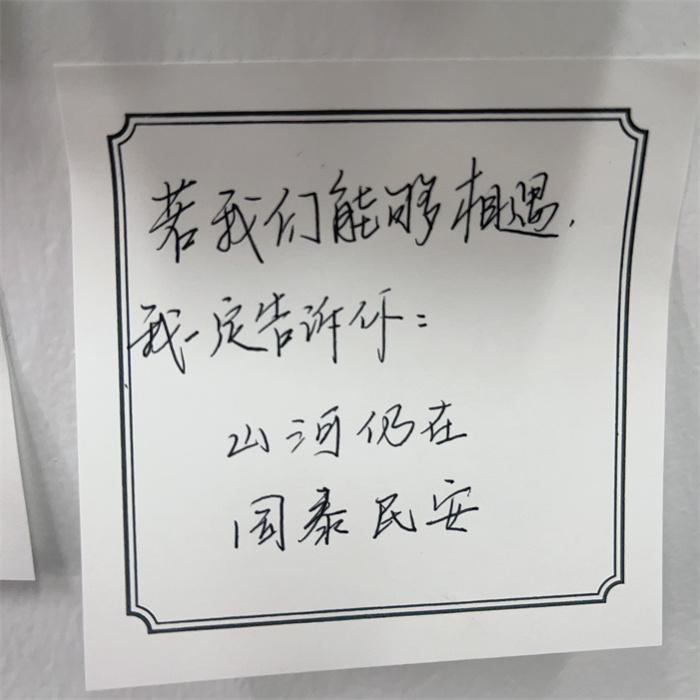 若我们能够相遇,
我一定告诉你:
山河仍在
国泰民安